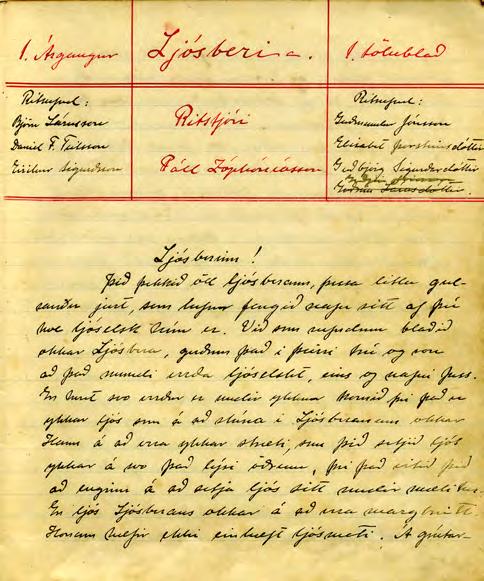 1. Árgangur
Ljósberinn.
1. tölublað
Ritnefnd:
Björn Lárusson
Daníel F. Teitsson
Eiríkur Sigurðsson
Ritstjóri
Páll Zóphóníasson
Ritnefnd:
Guðmundur Jónsson
Elísabet Þorsteinsdóttir
Guðbjörg Sigurðardóttir
Ljósberinn!
Þið þekkið öll ljósberann, þessa litlu gul-
jurt, sem hefur fengið nafn sitt af því
ljóselsk hún er. Við sem nefndum blaðið
okkar Ljósbera, gerðum það í þeirri trú og von
að það mundi verða ljóselskt, eins og nafni þess.
En hvort svo verður er undir ykkur komið því það er
ykkar ljós sem á að skína í Ljósberanum okkar
Hann á að vera ykkar stæði, sem þið setjið ljós
ykkar á svo það lýsi öðrum, því það vitið þið
að enginn á að setja ljós sitt undir mæliker.
En ljós Ljósberans okkar á að vera margbreitt
Honum hæfir ekki einhæft ljósmeti. Á